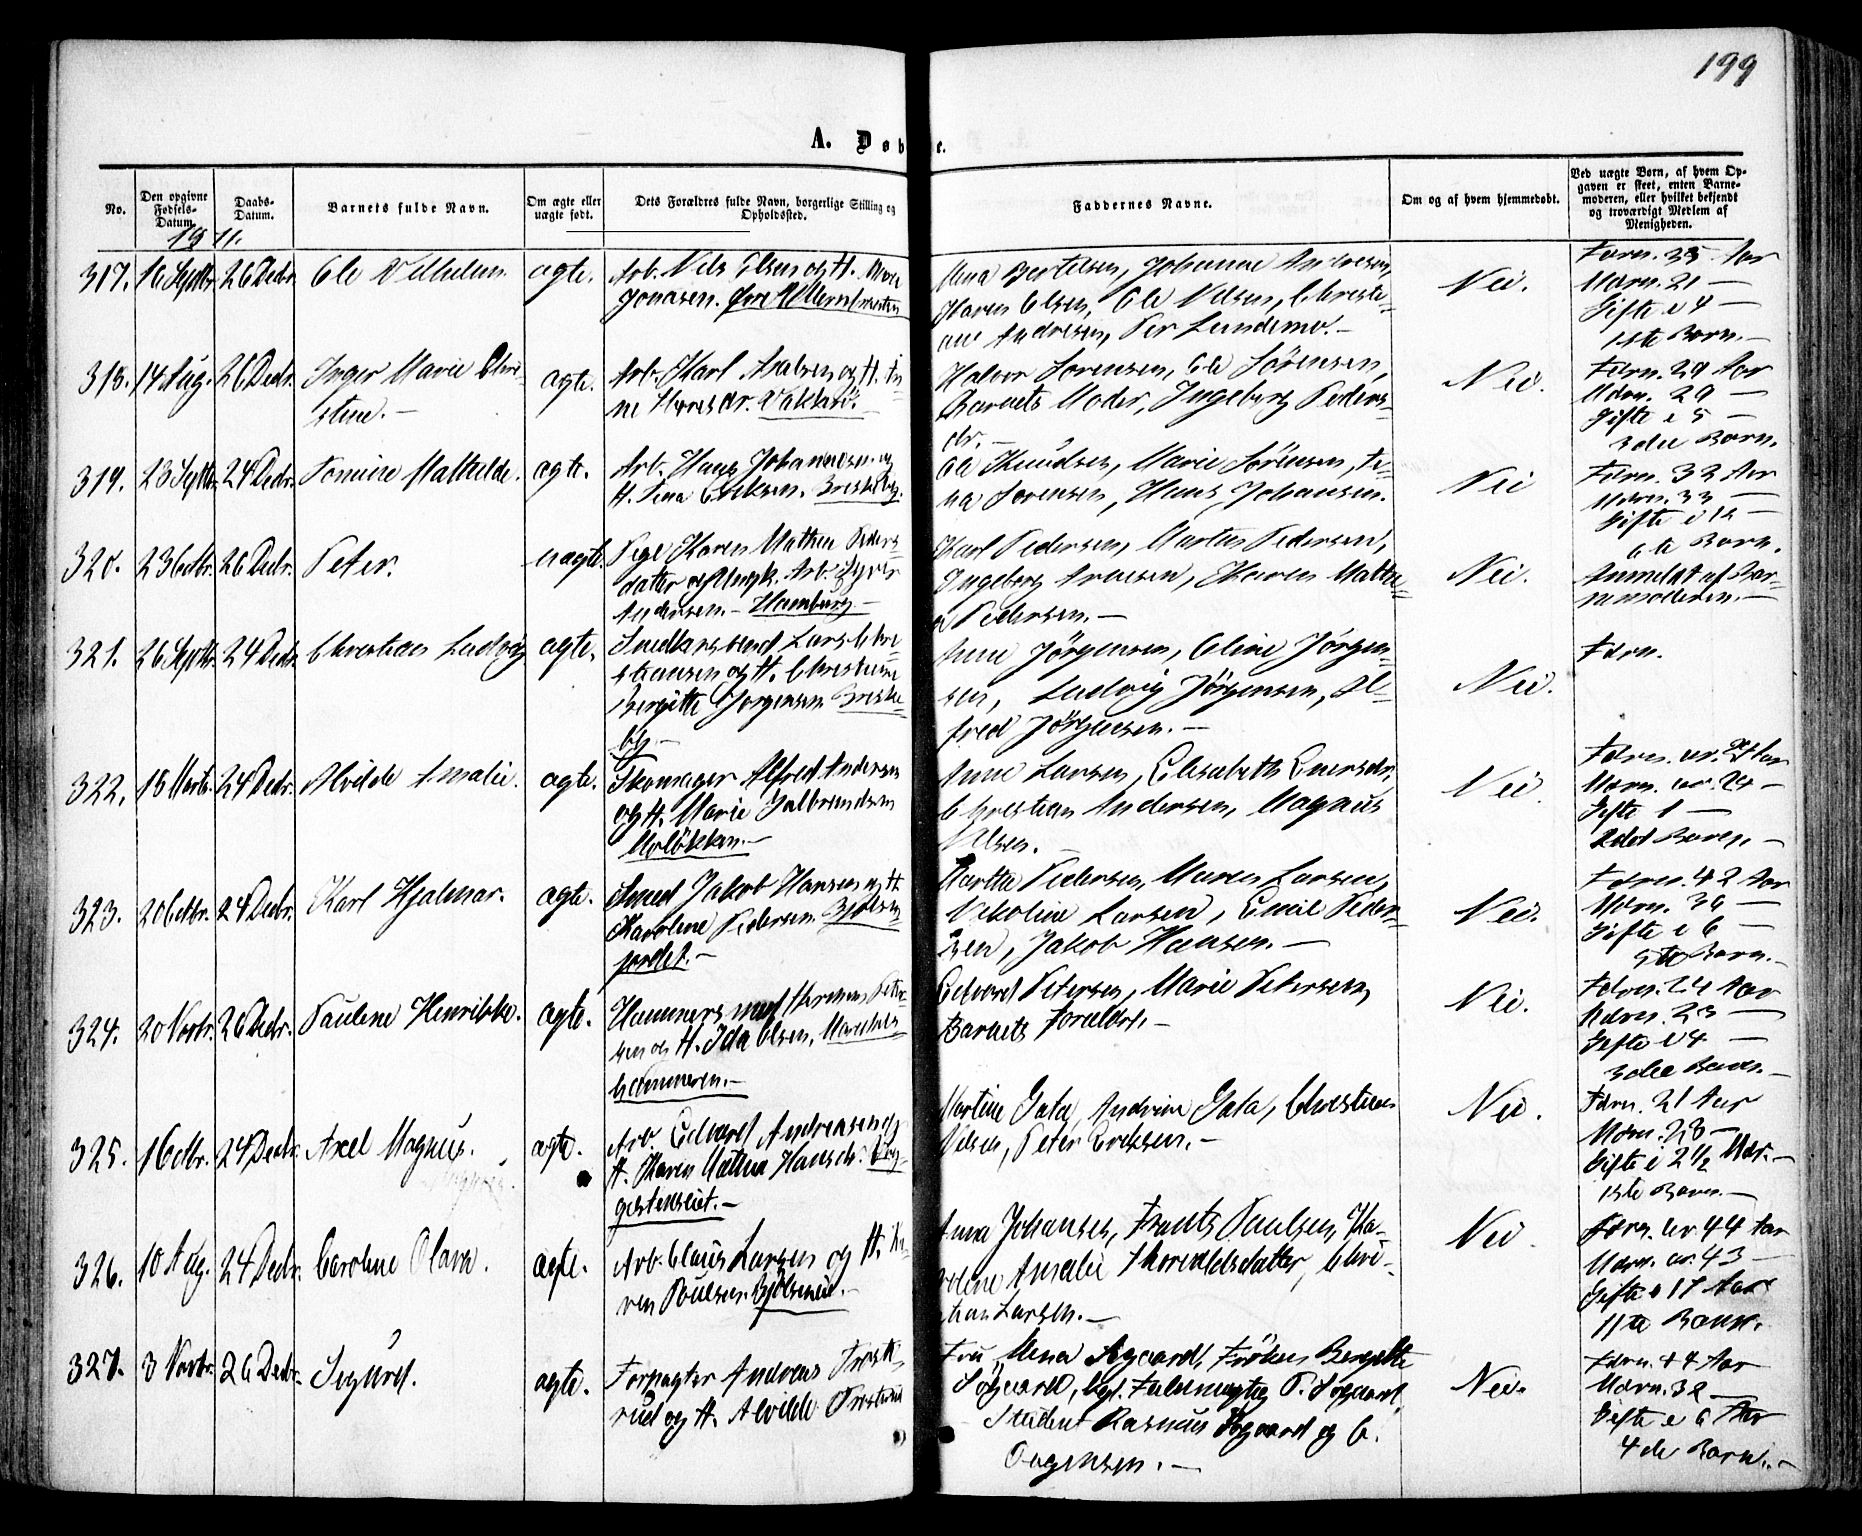 199
A. Døbte.
No.
Den opgivne Fødsels-Datum.
Daabs-Datum.
Barnets fulde Navn.
Om ægte eller uægte født.
Dets Forældres fulde Navn, borgerlige Stilling og Opholdssted.
Faddernes Navne.
Om og af hvem hjemmedøbt.
Ved uægte Børn, af hvem Opgaven er skeet, enten Barnemoderen, eller hvilket bekjendt og troværdigt Medlem af Menigheden.
317. 16 Septbr. 26 Decbr. Ole Vilhelm ægte. Arb. Nels Olsen og H.
Jonasen.
Mina Bertelsen, Johanne Andresen,
Karen Olsen, Ole Nelsen, Christi-
ane Andresen, Per Lundemo.—
Nei.
Færn. 35 Aar
Mørn. 21 —
Gifte i 4 —
1ste Barn.—
318. 14 Aug. 26 Decbr. Inger Marie Chri-
stine.— ægte. Arb. Karl Axelsen og H. An-
ne Hansdr. Vækkerø.
Halvor Sørensen, Ole Sørensen,
Barnets Moder, Ingeborg Peders-
dr.—
Nei.
Færn. 29 Aar
Mørn. 29 —
Gifte i 5 —
3die Barn.
319. 23 Septbr. 24 Decbr. Tomine Mathilde. ægte. Arb. Hans Johannesen og
H. Lina Eriksen. Briskeby.
Ole Knudsen, Marie Sørensen, Li-
na Sørensen, Hans Johansen.
Nei
Færn. 33 Aar
Mørn. 33 —
Gifte i 12 —
6te Barn.
320. 23 Octbr. 26 Decbr. Peter. uægte. Pige Karen Mathea Peders-
datter og Ungk. Arb. Syver
Andersen.— Hamburg—
Karl Pedersen, Martin Pedersen,
Ingeborg Arnesen, Karen Mathe-
a Pedersen.—
Nei.
Anmeldt af Bar-
nemoderen.—
321. 26 Septbr. 24 Decbr. Christian Ludvig ægte. Snedkersvend Lars Chri-
stiansen og H. Christiane
Bergitte Jørgensen Briske-
by—
Anne Jørgensen, Oline Jørgen-
sen, Ludvig Jørgensen, Al-
fred Jørgensen.—
Nei.
Færn.
322. 18 Marts. 24 Decbr. Alvilde Amalie. ægte. Skomager Alfred Andersen
og H. Marie Gulbrandsen
Uraløkken.—
Anne Larsen, Elisabeth Enersdr,
Christian Andersen, Magnus
Nilsen.—
Nei
Mørn. ca. 24 —
Gifte 1 —
2det Barn.—
323. 20 Octbr. 24 Decbr. Karl Hjalmar. ægte. Smed Jakob Hansen og H.
Karoline Pedersen. Bjølsen
jordet.—
Martha Pedersen, Maren Larsen,
Nikoline Larsen, Emil Peder-
sen, Jakob Hansen.—
Nei.
Færn. 42 Aar
Mørn. 36 —
Gifte i 6 —
5te Barn.—
324. 20 Novbr. 26 Decbr. Pauline Henrikke. ægte. Hammersmed Herman Peter-
sen og H. Ida Olsen, Maridals
hammeren.—
Edvard Petersen, Marie Petersen,
Barnets Forældre.—
Nei.
Færn. 24 Aar
Mørn. 23 —
Gifte i 4 —
3die Barn.—
325. 16 Octbr. 24 Decbr. Axel Magnus. ægte. Arb. Edvard Andreasen og
H. Karen Mathea Hansdr.
Martine Gata, Andrine Gata, Christian
Nilsen, Peter Eriksen.—
Nei.
Færn. 21 Aar
Mørn. 23 —
Gifte i 2 1/2 Mdr.—
1ste Barn.—
326. 10 Aug. 24 Decbr. Caroline Olava. ægte. Arb. Claus Larsen og H. Ka-
ren Poulsen. Bjølsenveien.—
Anna Johansen, Frants Paulsen, Ka-
roline Amalie Thorvaldsdatter, Chri-
stian Larsen.—
Nei.
Færn. ca. 44 Aar
Mørn. ca. 43 —
Gifte i 17 Aar
11te Barn.
327. 3 Novbr. 26 Decbr. Sigurd. ægte. Forpagter Andreas Frost-
rud og H. Alvilde Frostrud
Fru Mina Søgaard, Frøken Bergitte
Søgaard, Kgl. Fuldmægtig P. Søgaard,
Student Rasmus Søgaard og C.
Aagensen.—
Nei.
Færn. 44 Aar
Mørn. 32 —
Gifte i 6 Aar
4de Barn.—